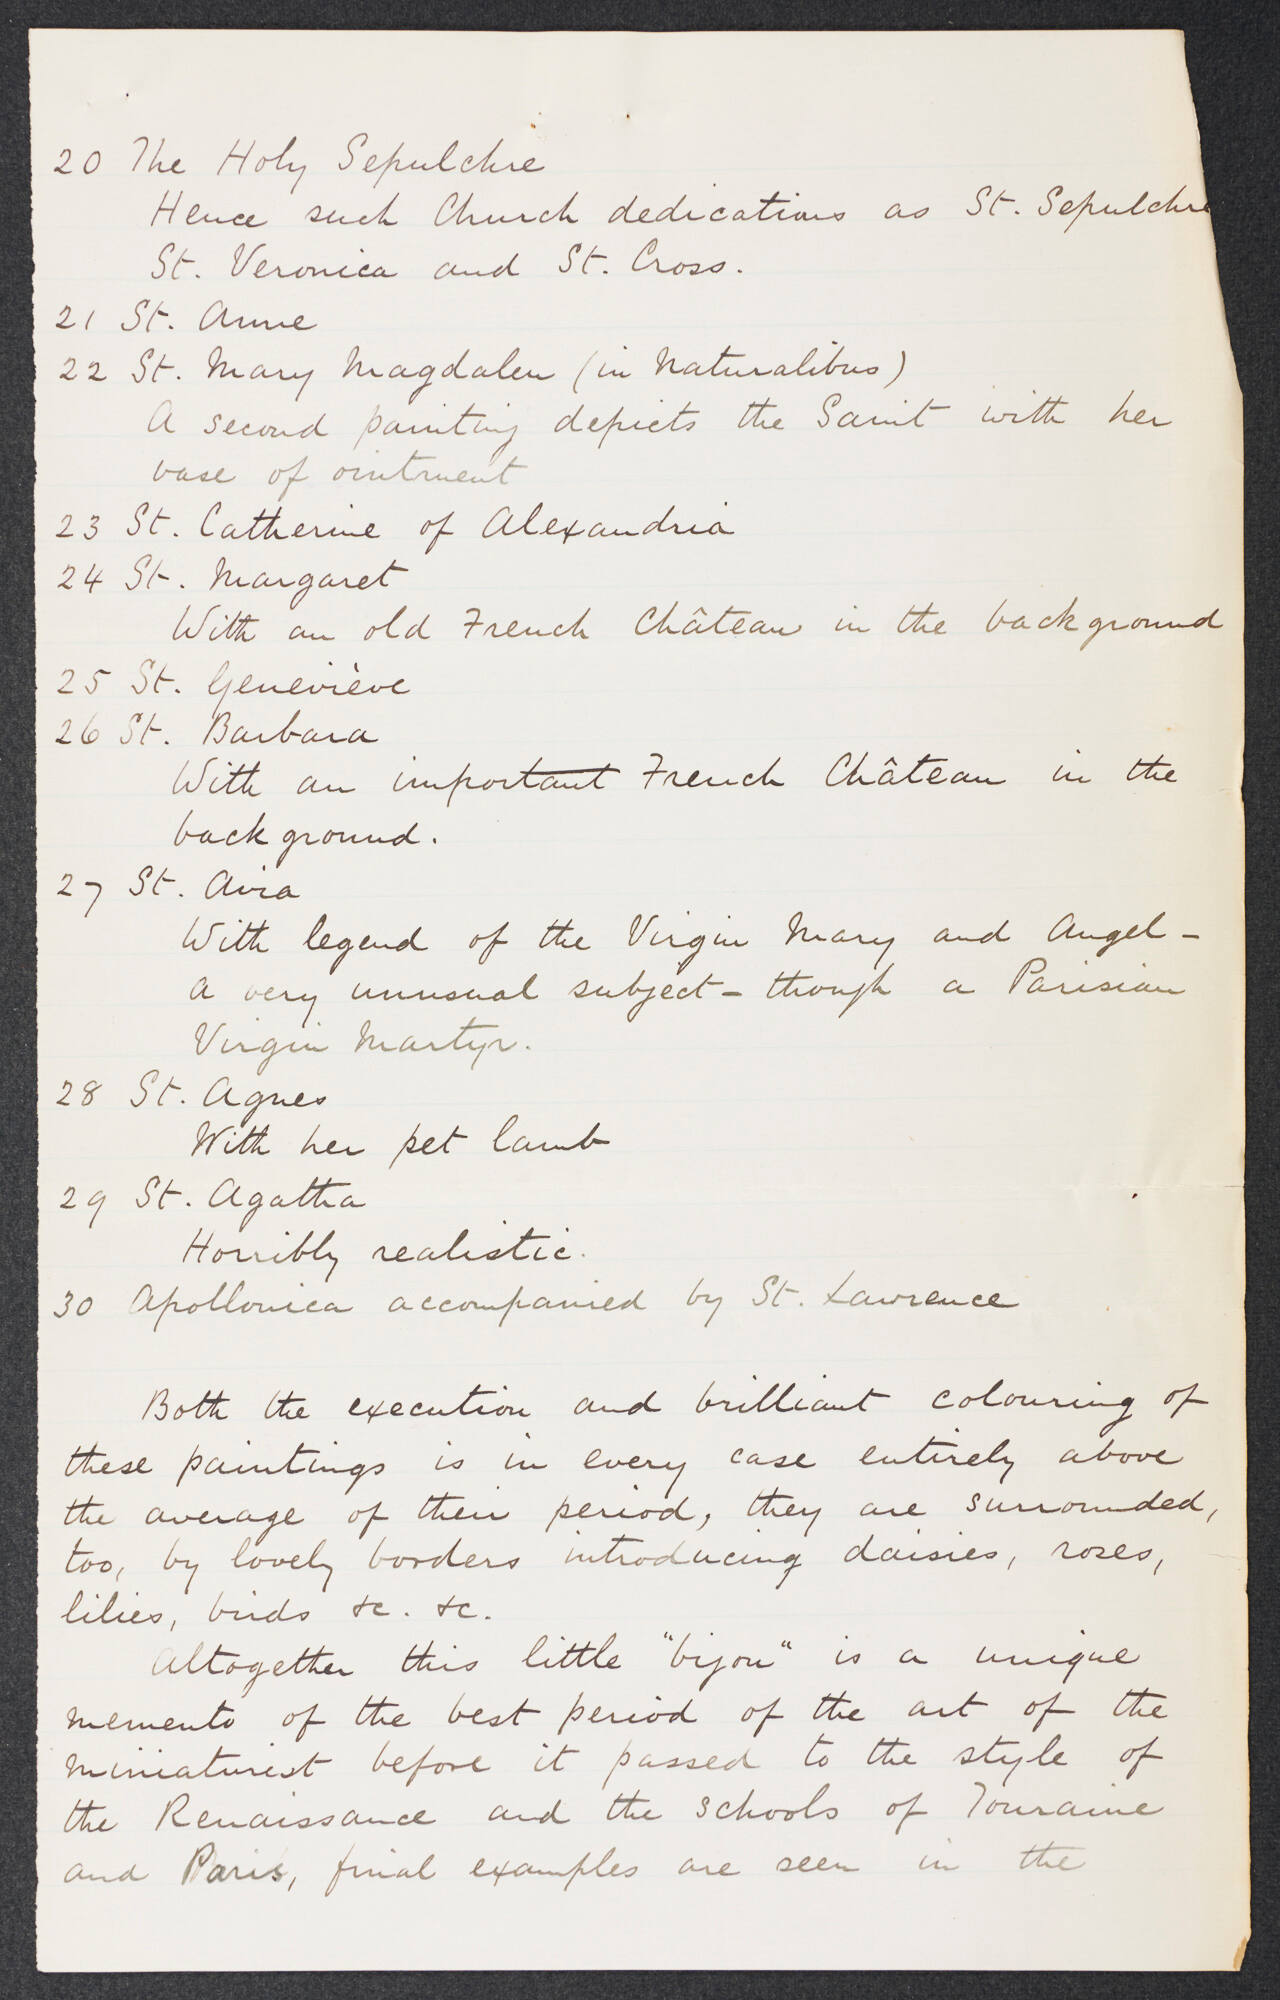 20 The Holy Sepulchre
Hence such Church dedications as St. Sepulchre
St. Veronica and St. Cross.
21 St. Anne
22 St. Mary Magdalen (in naturalibus)
A second painting depicts the Saint with her
vase of ointment
23 St. Catherine of Alexandria
24 St. Margaret
With an old French Château in the background
25 St. Geneviève
26 St. Barbara
With an important French Château in the
background.
27 St. Avia
With legend of the Virgin Mary and Angel -
a very unusual subject - though a Parisian
Virgin Martyr.
28 St. Agnes
With her pet lamb
29 St. Agatha
Horribly realistic.
30 Apollonica accompanied by St. Lawrence
Both the execution and brilliant colouring of
these paintings is in every case entirely above
the average of their period, they are surrounded,
too, by lovely borders introducing daisies, roses,
lilies, birds &c. &c.
Altogether this little "bijou" is a unique
memento of the best period of the art of the
miniaturist before it passed to the style of
the Renaissance and the schools of Touraine
and Paris, final examples are seen in the